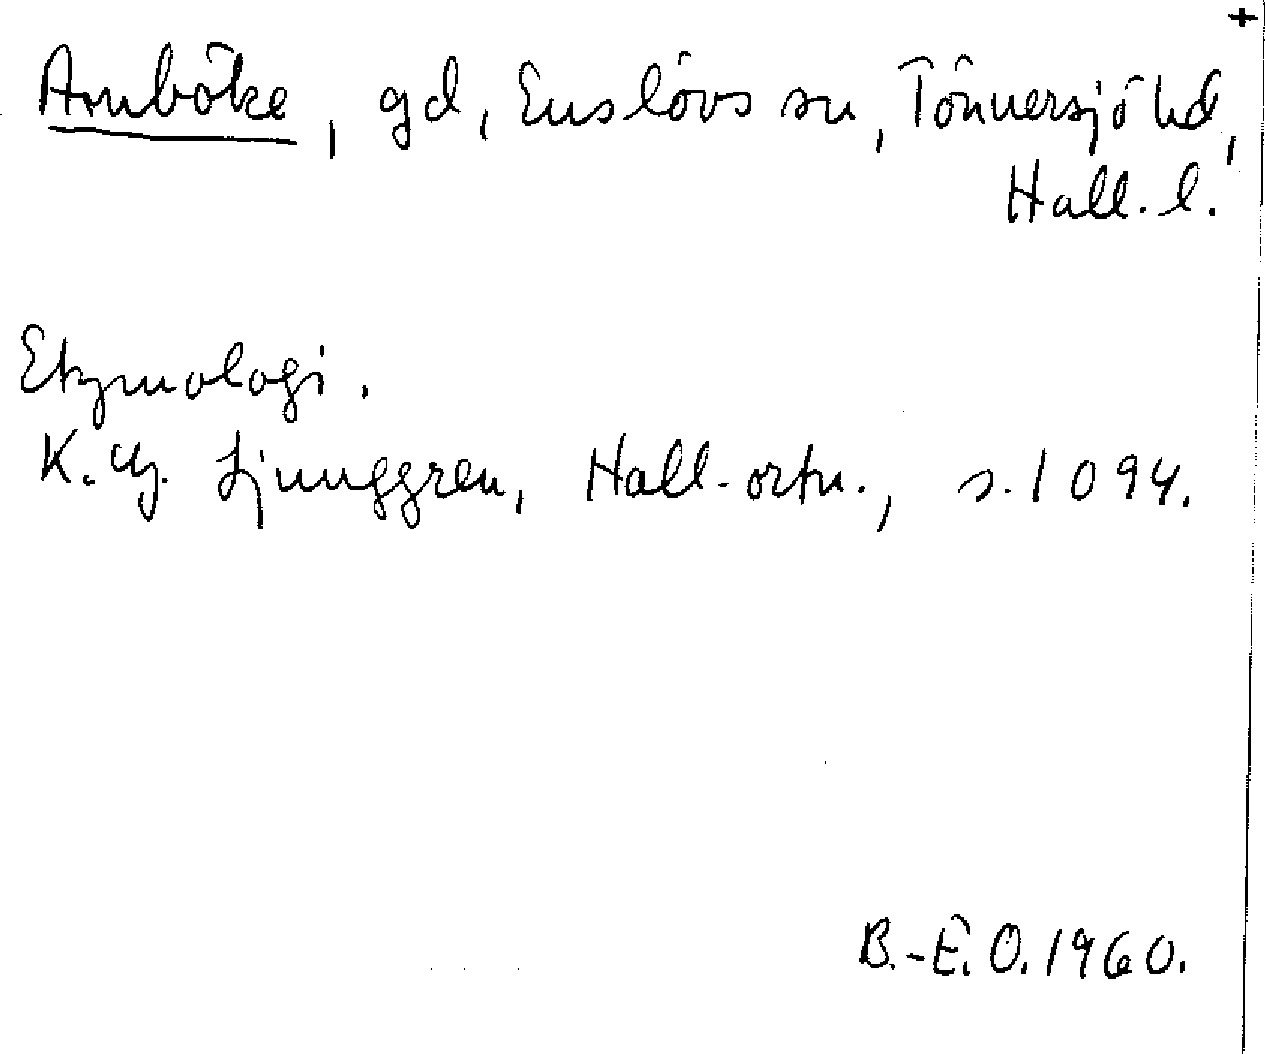 +
Arnböke, gd, Enslövs sn, Tönnersjö hd,
Hall. l.
Etymologi.
K. G. Ljunggren, Hall. ortn., s. 1094.
B.-E. O. 1960.